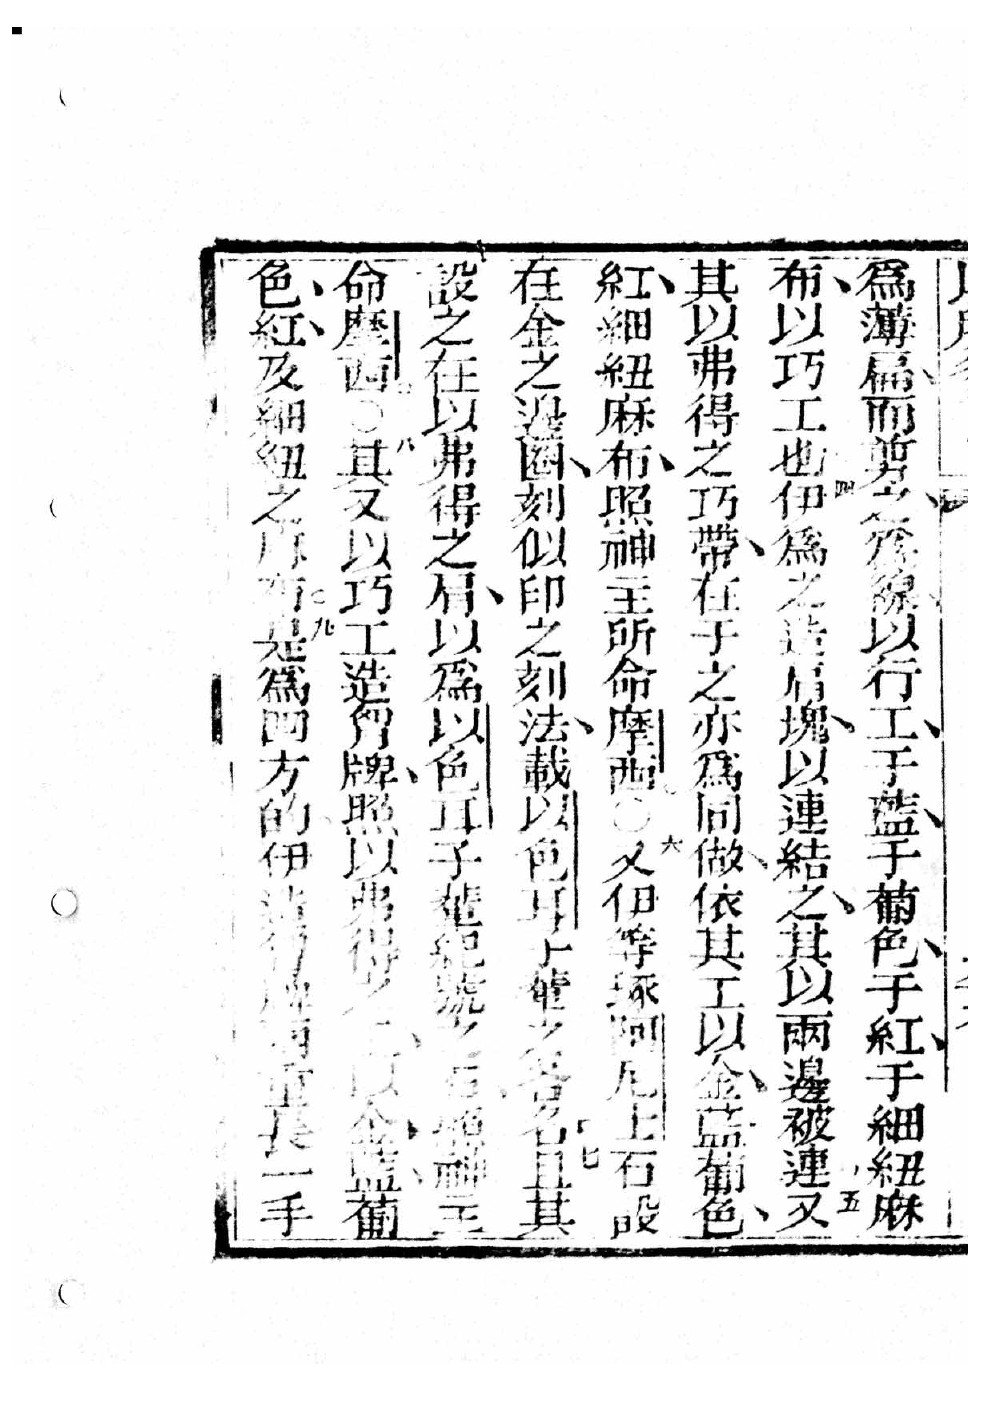 爲薄扁而剪之爲線以行工于藍于葡色于紅于細紐麻
布以巧工也四伊爲之造肩塊以連結之其以兩邊被連又五
其以弗得之巧帶在于之亦爲同做依其工以金藍葡色
紅細紐麻布照神主所命摩西〇六又伊等琢阿尼士石設
在金之邊圈刻似印之刻法載以色耳子輩之各名且七其
設之在以弗得之肩以爲以色耳子輩紀號之石照神主
命摩西〇八其又以巧工造胷牌照以弗得之工以金藍葡
色紅及細紐之麻布九是爲四方的伊造胷牌兩重長一手